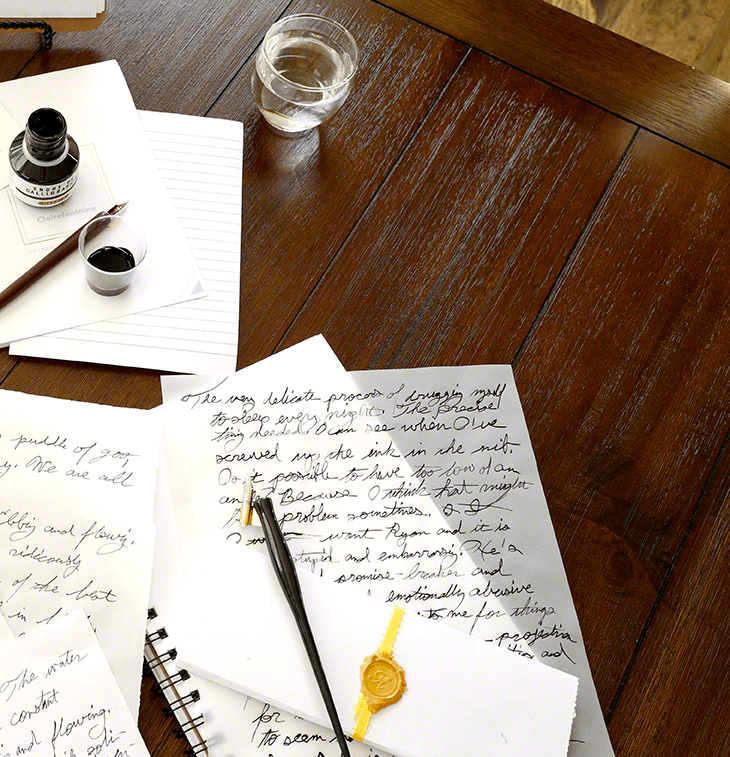 ENCRE DE
CALLIGRAPHIE
Clairefontaine
The very delicate process of drugging myself
to sleep every night. The precise
ting needed. I can see when I've
screwed up the ink in the nib.
Is it possible to have too low of an
an Because I think that might
problem sometimes.
I want Ryan and it is
stupid and embarrassing. He's a
promise-breaker and
emotionally abusive
to me for things
-projection
and
puddle of goo
We are all
and flowing.
ridiously
of the best
in
The water
constant
and flowing.
soli-
for
to seem